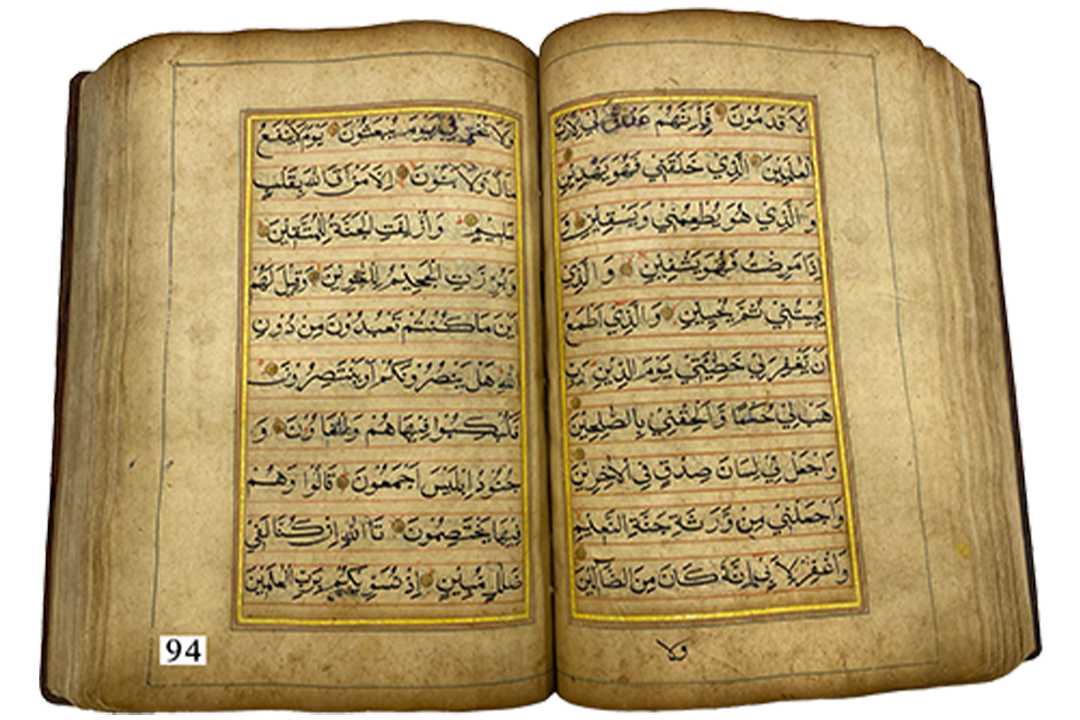 لاَ قْدَمُونَ فَاِنَّهُمْ عَدُوٌّ لِي اِلاَّ رَبَّ
الْعٰلَمِينَ الَّذِي خَلَقَنِي فَهُوَ يَهْدِينِ
وَ الَّذِي هُوَ يُطْعِمُنِي وَيَسْقِينِ وَ
اِذَا مَرِضْتُ فَهُوَ يَشْفِينِ وَ الَّذِي
يُمِيتُنِي ثُمَّ يُحْيِينِ وَ الَّذِي اَطْمَعُ
اَنْ يَغْفِرَ لِي خَطِيئَتِي يَوْمَ الدِّينِ رَبِّ
هَبْ لِي حُكْمًا وَ اَلْحِقْنِي بِالصّٰلِحِينَ
وَاجْعَلْ لِي لِسَانَ صِدْقٍ فِي الْاٰخِرِينَ
وَاجْعَلْنِي مِنْ وَرَثَةِ جَنَّةِ النَّعِيمِ
وَاغْفِرْ لِاَبِي اِنَّهُ كَانَ مِنَ الضَّالِّينَ
ولا
وَلَا تُخْزِنِي يَوْمَ يُبْعَثُونَ يَوْمَ لَا يَنْفَعُ
مَالٌ وَلَا بَنُونَ اِلَّا مَنْ اَتَى اللّٰهَ بِقَلْبٍ
سَلِيمٍ وَاُزْلِفَتِ الْجَنَّةُ لِلْمُتَّقِينَ
وَبُرِّزَتِ الْجَحِيمُ لِلْغٰوِينَ وَقِيلَ لَهُمْ
اَيْنَ مَا كُنْتُمْ تَعْبُدُونَ مِنْ دُونِ
اللّٰهِ هَلْ يَنْصُرُونَكُمْ اَوْ يَنْتَصِرُونَ
فَكُبْكِبُوا فِيهَا هُمْ وَالْغَاوُنَ وَ
جُنُودُ اِبْلِيسَ اَجْمَعُونَ قَالُوا وَهُمْ
فِيهَا يَخْتَصِمُونَ تَا اللّٰهِ اِنْ كُنَّا لَفِي
ضَلٰلٍ مُبِينٍ اِذْ نُسَوِّيكُمْ بِرَبِّ الْعٰلَمِينَ
94